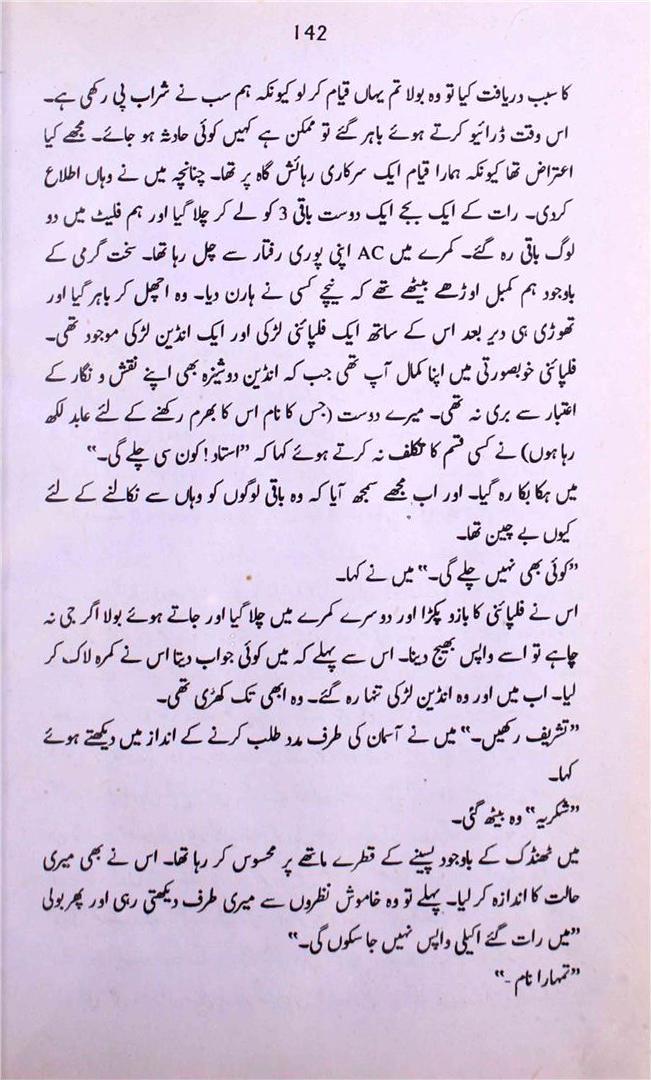 142
کا سبب دریافت کیا تو وہ بولا تم یہاں قیام کر لو کیونکہ ہم سب نے شراب پی رکھی ہے۔
اس وقت ڈرائیو کرتے ہوئے باہر گئے تو ممکن ہے کہیں کوئی حادثہ ہو جائے۔ مجھے کیا
اعتراض تھا کیونکہ ہمارا قیام ایک سرکاری رہائش گاہ پر تھا۔ چنانچہ میں نے وہاں اطلاع
کردی۔ رات کے ایک بجے ایک دوست باقی 3 کو لے کر چلا گیا اور ہم فلیٹ میں دو
لوگ باقی رہ گئے۔ کمرے میں AC اپنی پوری رفتار سے چل رہا تھا۔ سخت گرمی کے
باوجود ہم کمبل اوڑھے بیٹھے تھے کہ نیچے کسی نے ہارن دیا۔ وہ اچھل کر باہر گیا اور
تھوڑی ہی دیر بعد اس کے ساتھ ایک فلپائنی لڑکی اور ایک انڈین لڑکی موجود تھی۔
فلپائنی خوبصورتی میں اپنا کمال آپ تھی جب کہ انڈین دوشیزہ بھی اپنے نقش و نگار کے
اعتبار سے بری نہ تھی۔ میرے دوست (جس کا نام اس کا بھرم رکھنے کے لئے عابد لکھ
رہا ہوں) نے کسی قسم کا تکلف نہ کرتے ہوئے کہا کہ ”استاد! کون سی چلے گی۔“
میں ہکا بکا رہ گیا۔ اور اب مجھے سمجھ آیا کہ وہ باقی لوگوں کو وہاں سے نکالنے کے لئے
کیوں بے چین تھا۔
”کوئی بھی نہیں چلے گی۔“ میں نے کہا۔
اس نے فلپائنی کا بازو پکڑا اور دوسرے کمرے میں چلا گیا اور جاتے ہوئے بولا اگر جی نہ
چاہے تو اسے واپس بھیج دینا۔ اس سے پہلے کہ میں کوئی جواب دیتا اس نے کمرہ لاک کر
لیا۔ اب میں اور وہ انڈین لڑکی تنہا رہ گئے۔ وہ ابھی تک کھڑی تھی۔
”تشریف رکھیں۔“ میں نے آسمان کی طرف مدد طلب کرنے کے انداز میں دیکھتے ہوئے
کہا۔
”شکریہ“ وہ بیٹھ گئی۔
میں ٹھنڈک کے باوجود پسینے کے قطرے ماتھے پر محسوس کر رہا تھا۔ اس نے بھی میری
حالت کا اندازہ کر لیا۔ پہلے تو وہ خاموش نظروں سے میری طرف دیکھتی رہی اور پھر بولی
”میں رات گئے اکیلی واپس نہیں جا سکوں گی۔“
”تمہارا نام -“